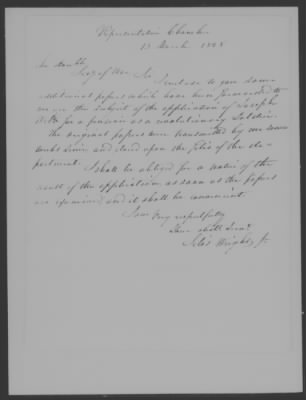 Representatives Chamber
13 March 1828
Sir I enclose to you some
additional papers which have been forwarded to
me on the subject of the application of Joseph
for a pension as a revolutionary Soldier.
The original papers were transmitted by me some
weeks since and claimed upon the files of the de-
partment. I shall be obliged for a notice of the
result of the application as soon as the papers
are examined, and it shall be convenient.
I am very respectfully
Your obdt Servt
Silas Wright Jr